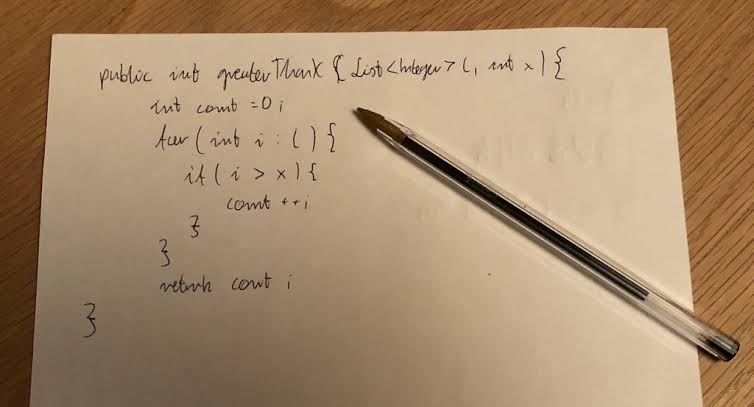 public int greaterThanX ( List<Integer> l, int x ) {
int count = 0;
for ( int i : l ) {
if ( i > x ) {
count ++;
}
}
return count ;
}